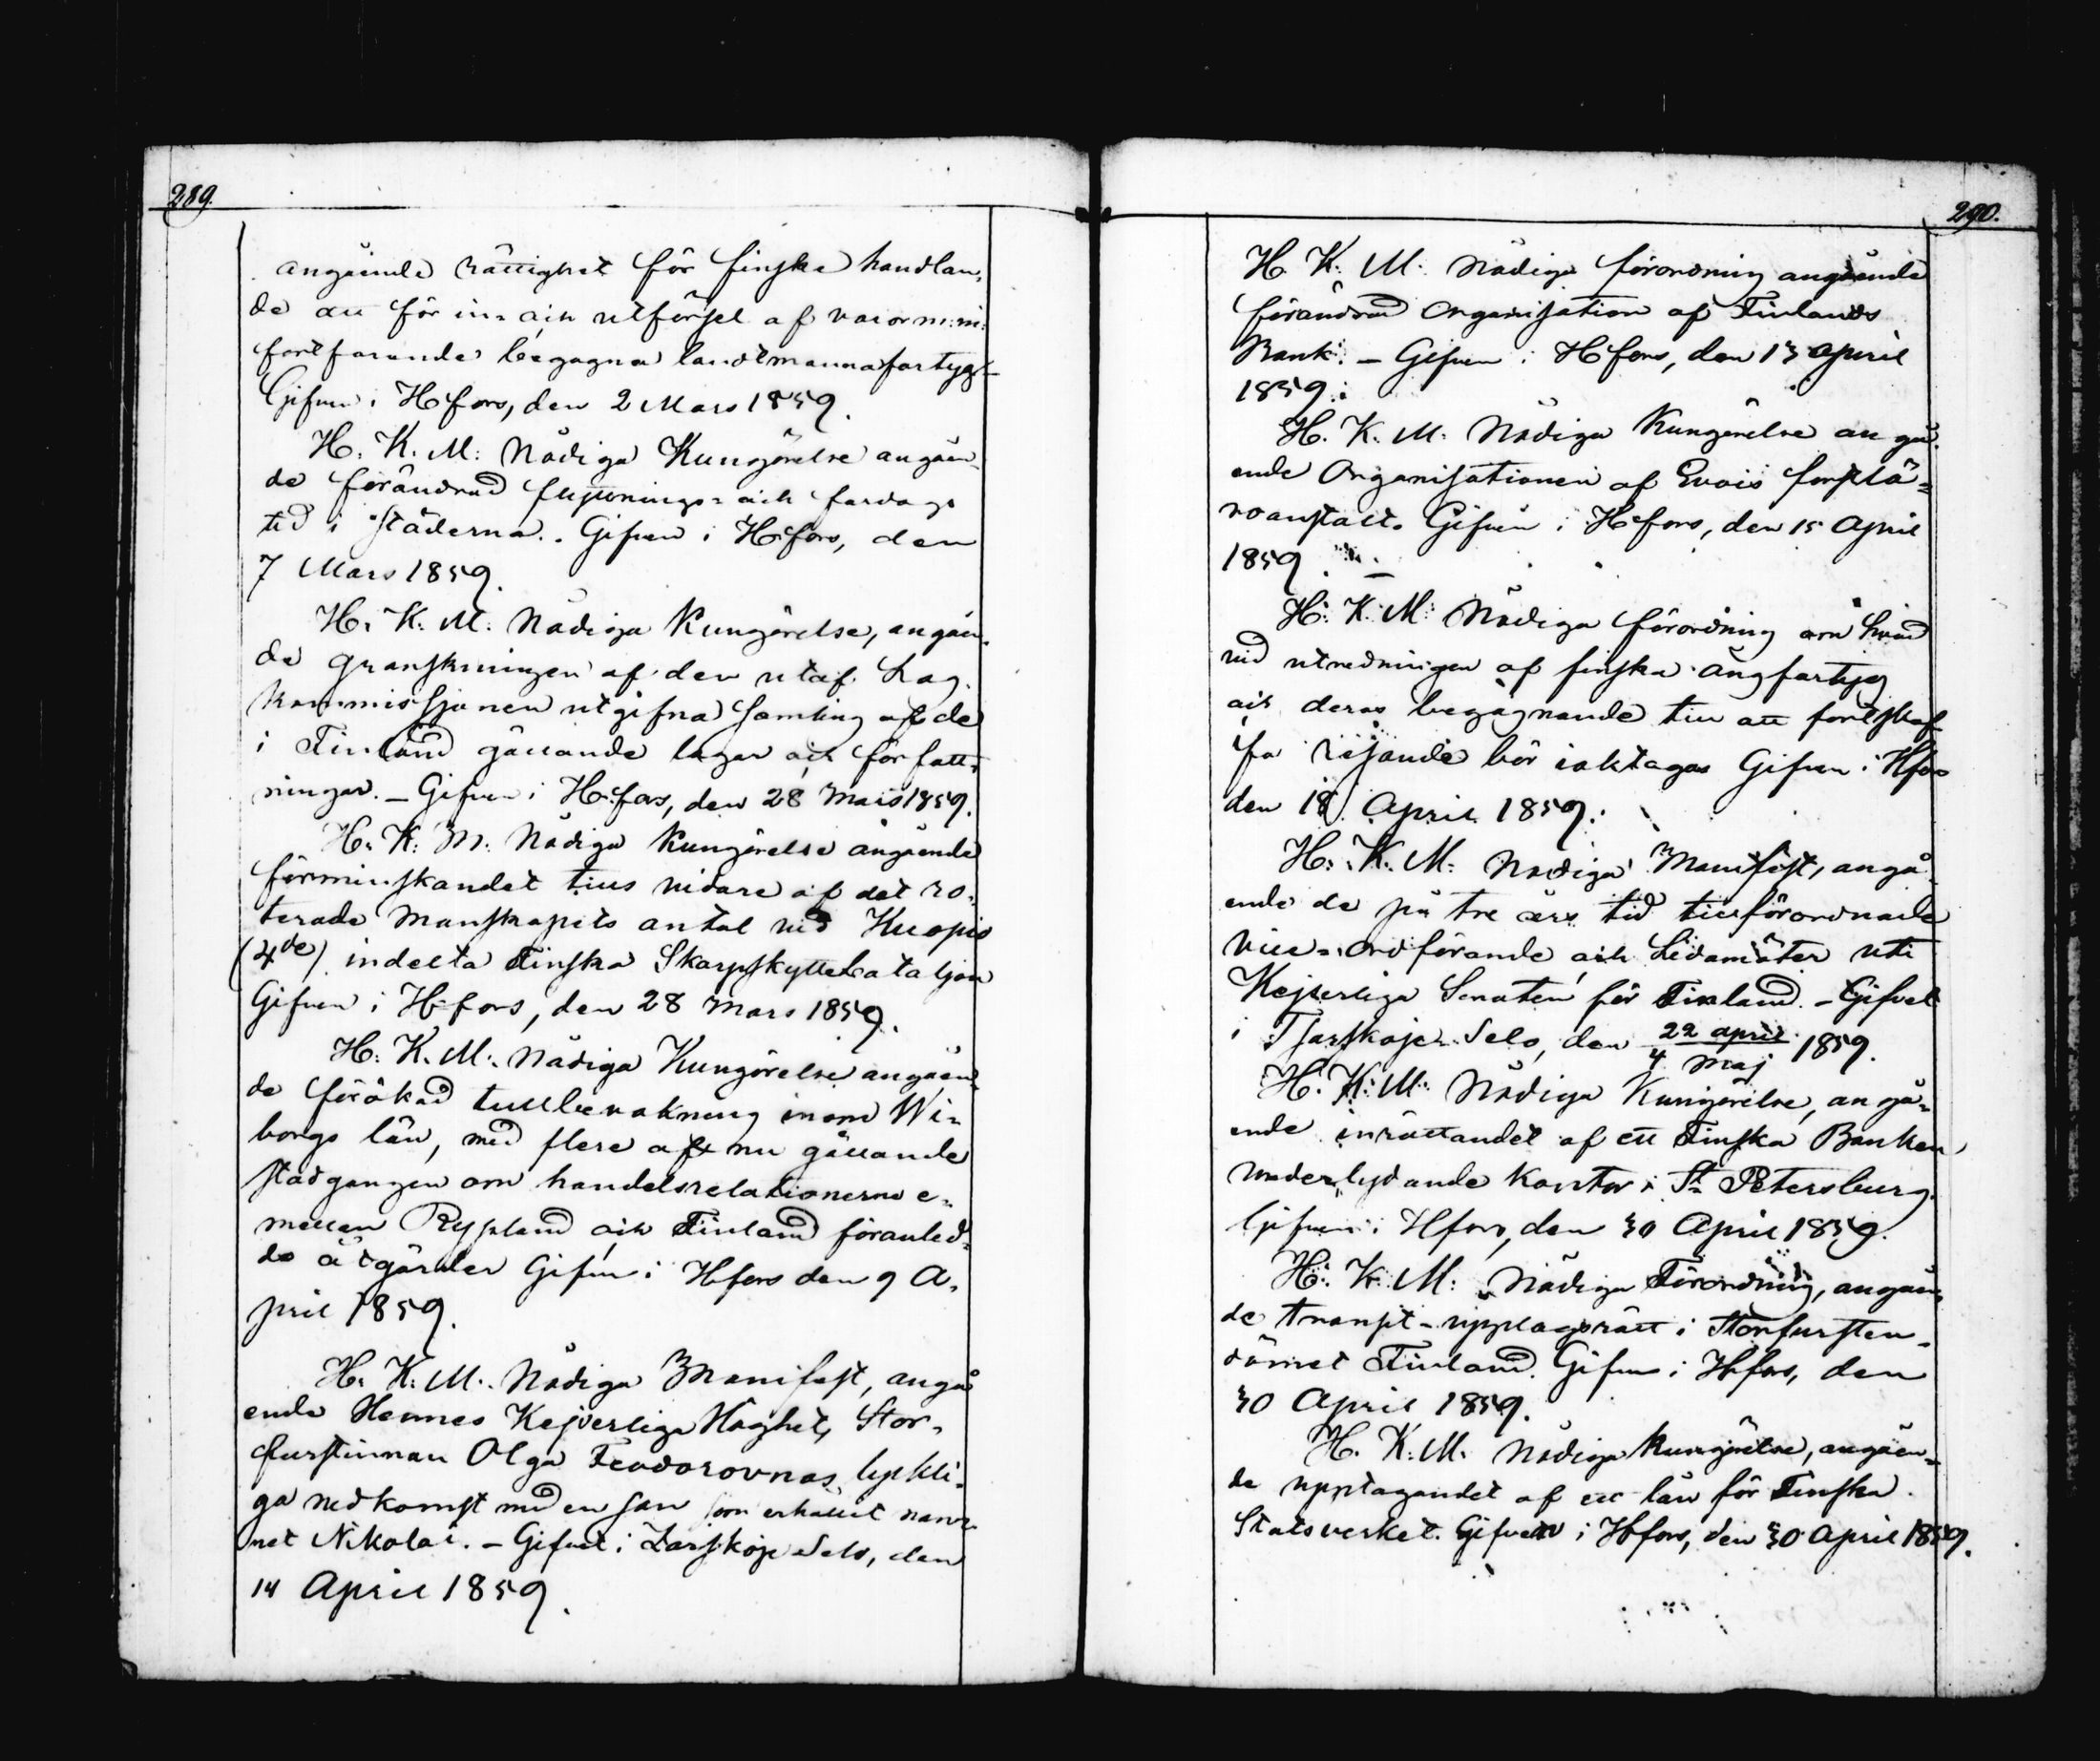 289.
angående rättighet för finska handlan-
de att för in- och utförsel af varor m: m:
fortfarande begagna landtmannafartyg -
Gifven i H:fors, den 2 Mars 1859.
H. K. M: Nådiga Kungörelse angåen-
de förändrad flyttnings- och fardags
tid i städerna. Gifven i H:fors, den
7 Mars 1859.
H. K. M: Nådiga Kungörelse, angåen-
de granskningen af den utaf Lag-
kommissjonen utgifna Samling af de
i Finland gällande lagar och författ-
ningar. - Gifven i H:fors, den 28 Mars 1859.
H. K. M. Nådiga Kungörelse angående
förminskandet tills vidare af det ro-
terade Manskapets antal vid Kuopio
(4de) indelta Finska Skarpskyttebataljon
Gifven i H:fors, den 28 Mars 1859.
H. K. M. Nådiga Kungörelse angåen-
de förökad tullbevakning inom Wi-
borgs län, med flere af nu gällande
stadganden om handelsrelationerne e-
mellan Ryssland och Finland föranled-
de åtgärder Gifven i H:fors den 9 A-
pril 1859.
H. K. M. Nådiga Manifest, angå
ende Hennes Kejserliga Höghet, Stor-
furstinnan Olga Feodorovnas lyckli-
ga nedkomst med en son som erhållit nam-
net Nikolai. - Gifvet i Zarskoje Selo, den
14 April 1859.
290.
H. K. M. Nådiga förordning angående
förändrad Organisation af Finlands
Bank. - Gifven i H:fors, den 13 April
1859.
H. K. M. Nådiga Kungörelse angå-
ende Organisationen af Evois forstlä-
roanstalt. Gifven i H:fors, den 15 April
1859.
H. K. M. Nådiga förordning om hvad
vid utredningen af finska ångfartyg
och deras begagnande till att fortskaf-
fa resande bör iakttagas Gifven i Hfors
den 18 April 1859.
H. K. M. Nådiga Manifest, angå
ende de på tre års tid tillförordnade
Vice-ordförande och Ledamöter uti
Kejserliga Senaten för Finland. - Gifvet
i Tsarskoje-Selo, den 22 april / 4 Maj 1859.
H. K. M. Nådiga Kungörelse, angå-
ende inrättandet af ett Finska Banken
underlydande Kontor i St. Petersburg.
Gifven i Hfors, den 30 April 1859.
H. K. M. Nådiga Förordning, angåen-
de transit-upplagsrätt i Storfursten-
dömet Finland. Gifven i Hfors, den
30 April 1859.
H. K. M. Nådiga Kungörelse, angåen-
de upptagandet af ett lån för Finska
Statsverket. Gifven i Hfors, den 30 April 1859.